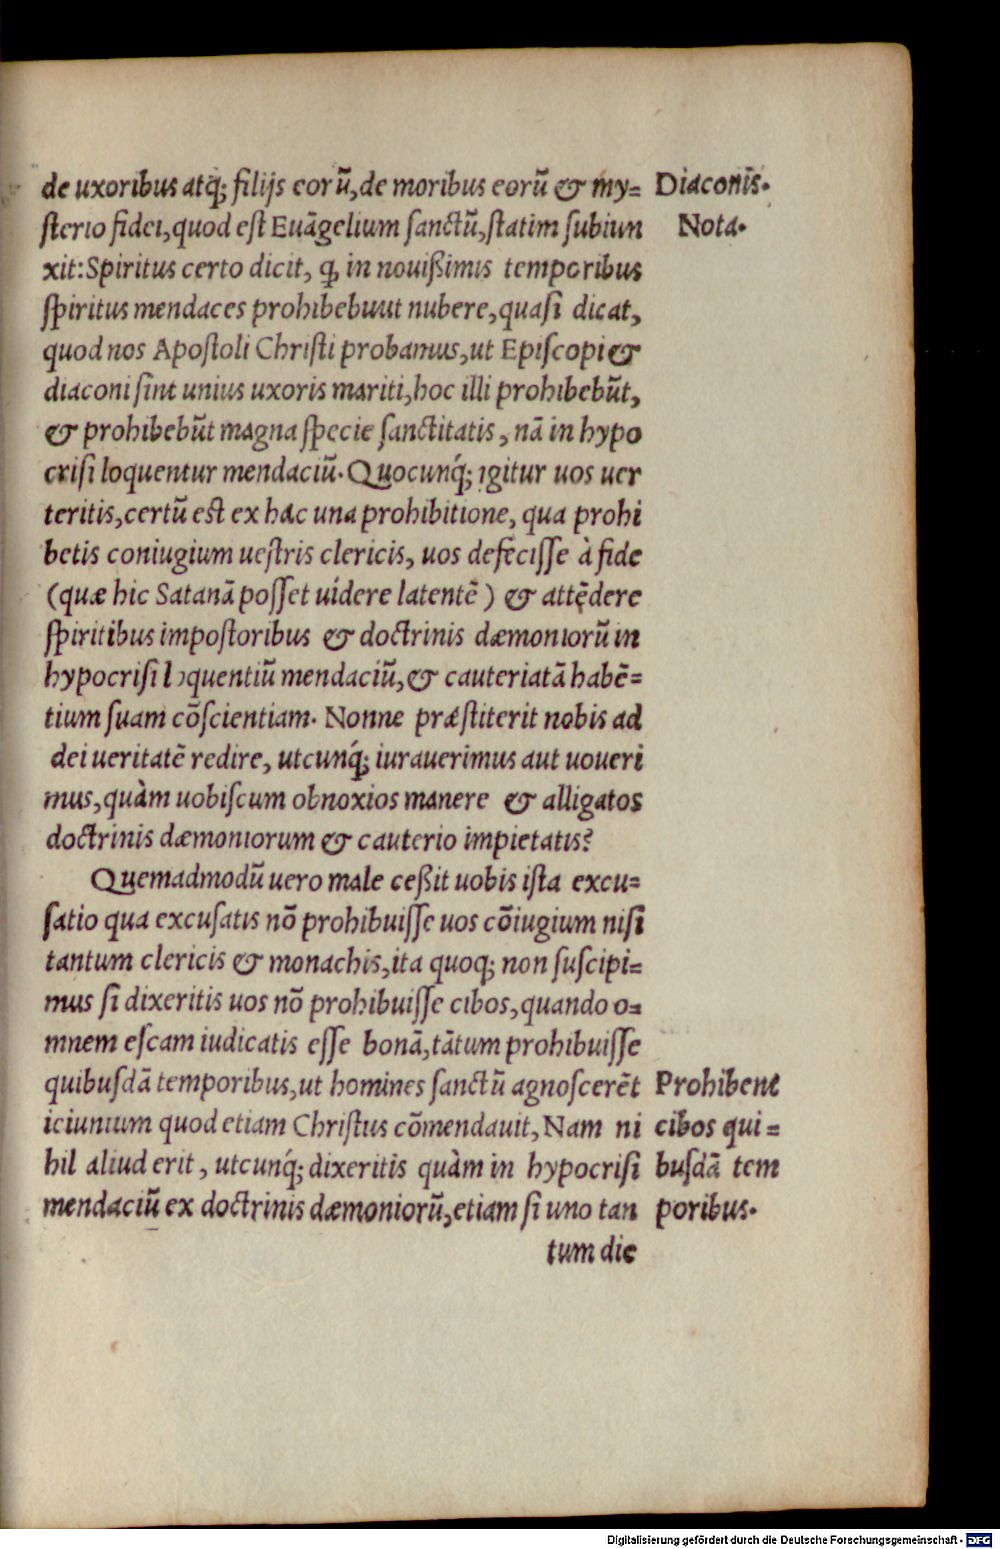 de uxoribus atq; filijs eorū, de moribus eorū & my=
sterio fidei, quod est Euāgelium sanctū, statim subiun
xit: Spiritus certo dicit, ꝙ in nouißimis temporibus
spiritus mendaces prohibebunt nubere, quasi dicat,
quod nos Apostoli Christi probamus, ut Episcopi &
diaconi sint unius uxoris mariti, hoc illi prohibebūt,
& prohibebūt magna specie sanctitatis, nā in hypo
crisi loquentur mendaciū. Quocunq́; igitur uos uer
teritis, certū est ex hac una prohibitione, qua prohi
betis coniugium uestris clericis, uos defecisse à fide
(quæ hic Satanā posset uidere latentē) & attēdere
spiritibus impostoribus & doctrinis dæmoniorū in
hypocrisi loquentiū mendaciū, & cauteriatā habē=
tium suam cōscientiam. Nonne præstiterit nobis ad
dei ueritatē redire, utcunq́; iurauerimus aut uoueri
mus, quàm uobiscum obnoxios manere & alligatos
doctrinis dæmoniorum & cauterio impietatis?
Quemadmodū uero male ceßit uobis ista excu=
satio qua excusatis nō prohibuisse uos cōiugium nisi
tantum clericis & monachis, ita quoq; non suscipi=
mus si dixeritis uos nō prohibuisse cibos, quando o=
mnem escam iudicatis esse bonā, tātum prohibuisse
quibusdā temporibus, ut homines sanctū agnoscerēt
ieiunium quod etiam Christus cōmendauit, Nam ni
hil aliud erit, utcunq́; dixeritis quàm in hypocrisi
mendaciū ex doctrinis dæmoniorū, etiam si uno tan
tum die
Diaconis.
Nota.
Prohibent
cibos qui=
busdā tem
poribus.
Digitalisierung gefördert durch die Deutsche Forschungsgemeinschaft - DFG